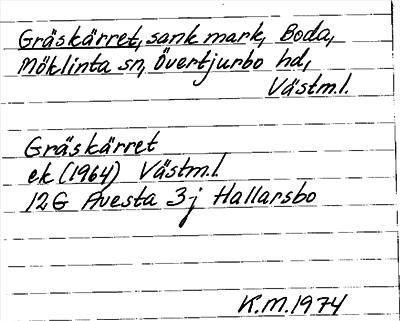 Gräskärret, sank mark, Boda,
Möklinta sn, Övertjurbo hd,
Västm.l.
Gräskärret
ek (1964) Västm.l.
12G Avesta 3j Hallarsbo
K.M. 1974